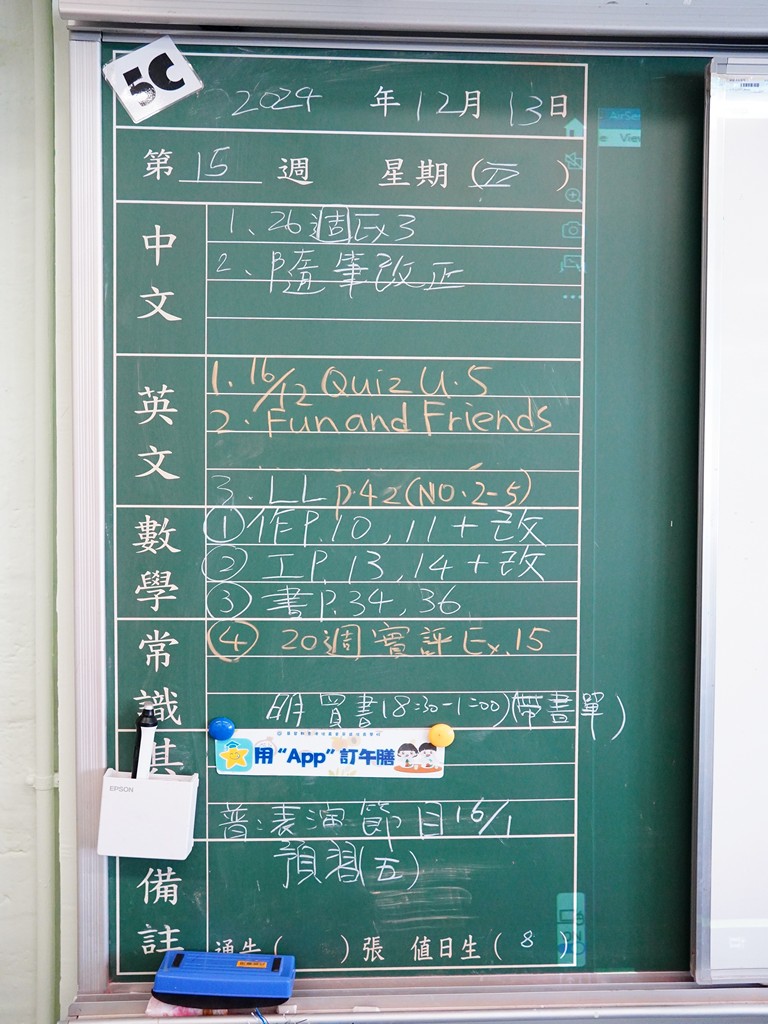 5C
2024 年 12月 13日
第 15 週 星期 (五)
AirSe
Vie
中文
1、26週Ex3
2、隨筆改正
英文
1. 16/12 Quiz U.5
2. Fun and Friends
3. LL p.42(NO.2-5)
數學
① 作P.10,11+改
② 工P.13,14+改
③ 書P.34,36
④ 20週實評Ex.15
常識
明買書(8:30-1:00)(帶書單)
其
用“App”訂午膳
EPSON
普:表演節目16/1
預習(五)
備註
通告( )張 值日生(8)